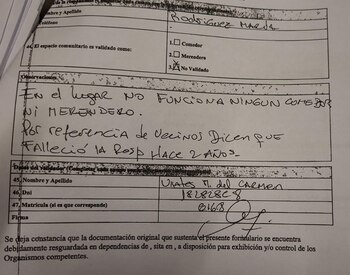 Nombre y Apellido Rodriguez Maria
44. El espacio comunitario es validado como:
1. Comedor
2. Merendero
3. No Validado
Observaciones
EN el lugar NO FUNCIONA NINGUN COMEDOR
NI MERENDERO.
Por referencia de Vecinos DiceN QUE
Falleció la Resp HACE 2 AÑOS
45. Nombre y Apellido M. del CARMEN
46. Dni
47. Matrícula (si es que corresponde) 8168
Firma
Se deja constancia que la documentación original que sustenta el presente formulario se encuentra
debidamente resguardada en dependencias de , sita en , a disposición para exhibición y/o control de los
Organismos competentes.